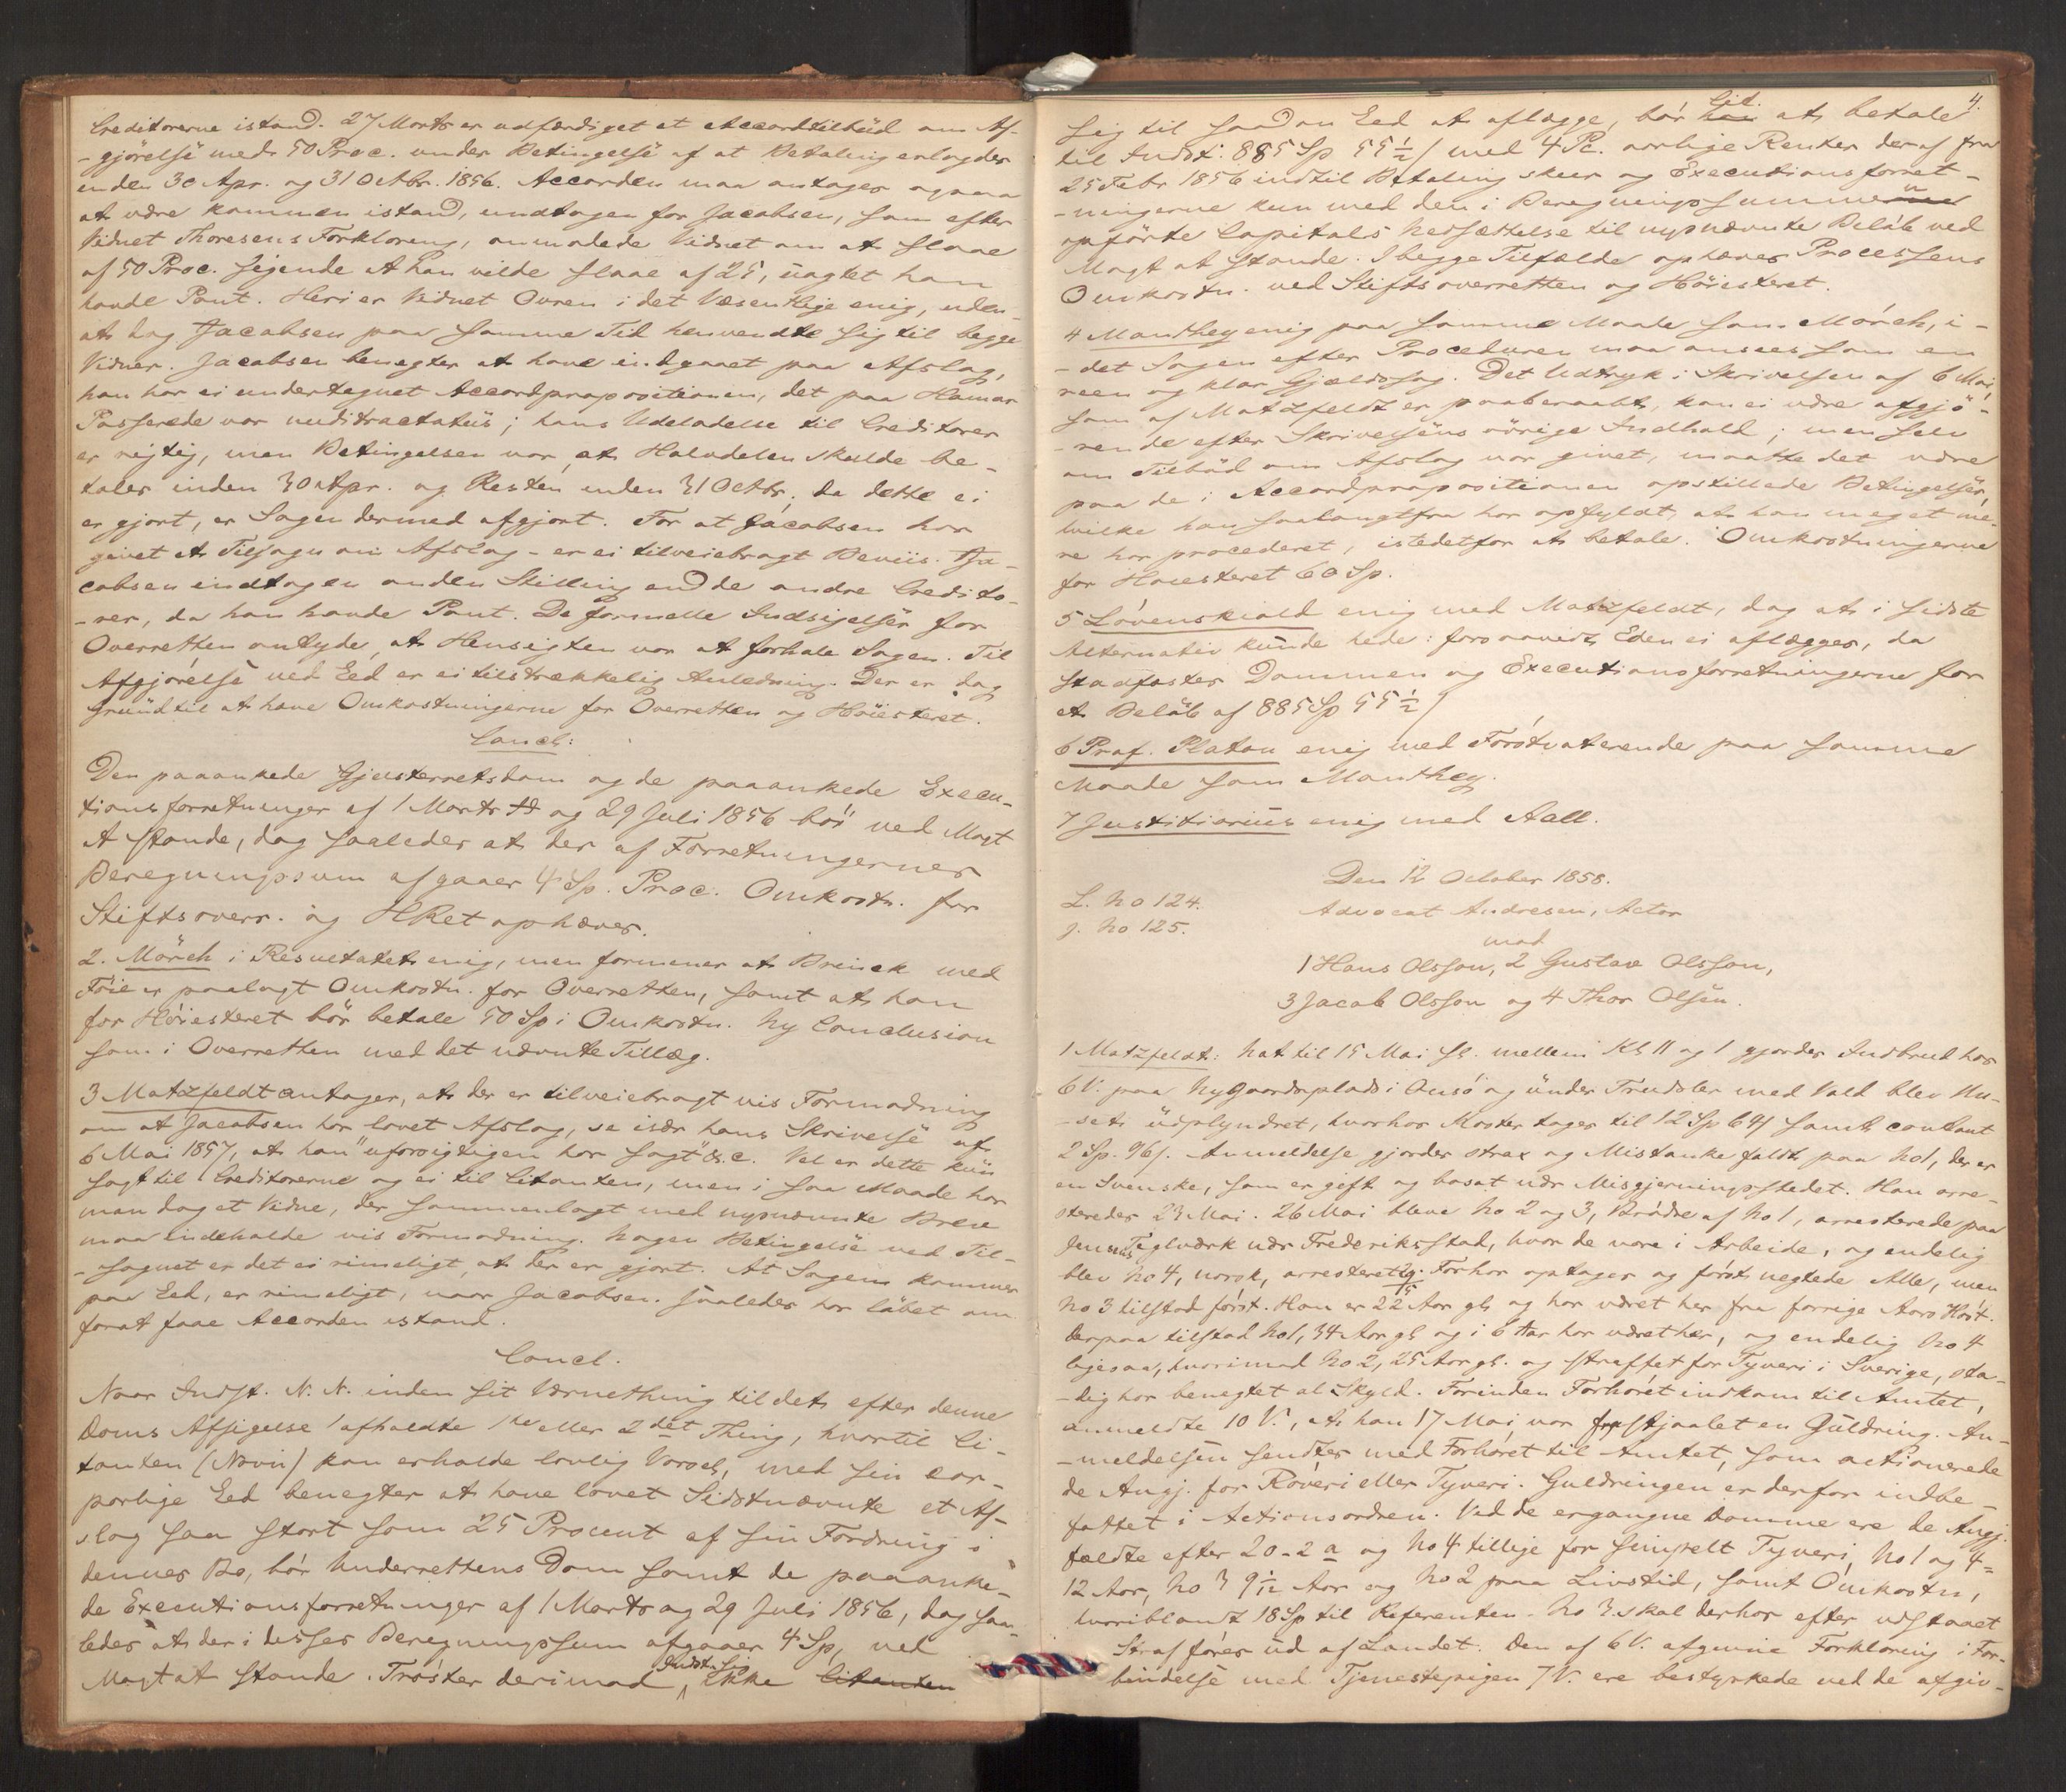 Creditorerne istand. 27 Marts er udfærdiget et Accordtilbud om Af-
-gjörelse med 50 Proc. under Betingelse af at Betaling erlagdes
inden 30 Apr. og 31 Octbr. 1856. Accorden maa antages ogsaa
at være kommen istand, undtagen for Jacobsen, som efter
Vidnet Thoresens Forklaring, anmodede Vidnet om at slaae
af 50 Proc. sigende at han vilde slaae af 25, uagtet han
havde Pant. Heri er Vidnet Ovren i det Væsentlige enig, uden-
at dog Jacobsen paa samme Tid henvendte sig til begge
Vidner. Jacobsen benegter at have indgaaet paa Afslag,
han har ei undertegnet Accordpropositionen, det paa Hamar
Passerede var nuditractatus; hans Udeladelse til Creditorer
er rigtig, men Betingelsen var, at Halvdelen skulde be-
tales inden 30 Apr. og Resten inden 31 Octbr, da dette ei
er gjort, er Sagen dermed afgjort. For at Jacobsen har
givet et Tilsagn om Afslag - er ei tilveiebragt Beviis. Ja-
cobsen indtager anden Stilling end de andre Credito-
-rer, da han havde Pant. De formelle Indsigelser for
Overretten antyde, at Hensigten var at forhale Sagen. Til
Afgjörelse ved Eed er ei tilstrækkelig Anledning. Der er dog
Grund til at hæve Omkostningerne for Overretten og Höiesteret.
Concl:
Den paaankede Gjesterretsdom og de paaankede Execu-
tionsforretninger af 1 Marts og 29 Juli 1856 bör ved Magt
at stande, dog saaledes at der af Forretningernes
Beregningssum afgaaer 4 Sp. Proc. Omkostn. for
Stiftsoverr. og HRet ophæves.
2. Mörch i Resultatet enig, men formener at Brinck med
Föie er paalagt Omkostn. for Overretten, samt at han
for Höiesteret bör betale 50 Sp i Omkostn. Ny Conclusion
som i Overretten med det nævnte Tillæg.
3 Matzfeldt antager, at der er tilveiebragt vis Formodning
om at Jacobsen har lovet Afslag, se især hans Skrivelse af
6 Mai 1857, at han "uforsigtigen har sagt" &.c. Vel er dette kun
sagt til Creditorerne og ei til Citanten, men i saa Maade har
man dog et Vidne, der sammenlagt med nysnævnte Brev
maa indeholde vis Formodning. Nogen Betingelse ved Til-
-sagnet er det ei rimeligt, at der er gjort. At Sagen kommer
paa Eed, er rimeligt, naar Jacobsen saaledes har löbet om
forat faae Accorden istand.
Concl.
Naar Indst. N. N. inden sit Værnething til det efter denne
Doms Afsigelse afholdte 1te eller 2det Thing, hvortil Ci-
tanten (Navn) kan erholde lovlig Varsel, med sin cor-
porlige Eed benegter at have lovet Sidstnævnte et Af-
slag saa stort som 25 Procent af sin Fordring i
dennes Bo, bör Underrettens Dom samt de paaanke-
de Executionsforretninger af 1 Marts og 29 Juli 1856, dog saa-
ledes at der i disses Beregningssum afgaaer 4 Sp, ved
Magt at stande. Tröster derimod Indst. sig ikke Citanten
4.
sig til saadan Eed at aflægge, bör Cit. at betale
til Indst: 885 Sp 55½ / med 4 Pc. aarlige Renter deraf fra
25 Febr 1856 indtil Betaling skeer og Executionsforret-
-ningerne kun med den i Beregningssummen
opförte Capitals Nedsættelse til nysnævnte Belöb ved
Magt at stande. I begge Tilfælde ophæves Processens
Omkostn. ved Stiftsoverretten og Höiesteret.
4 Manthey enig paa samme Maade som Mörch, i-
-det Sagen efter Proceduren maa ansees som en
reen og klar Gjældssag. Det Udtryk i Skrivelsen af 6 Mai,
som af Matzfeldt er paaberaabt, kan ei være afgjö-
-rende efter Skrivelsens övrige Indhold; men selv
om Tilbud om Afslag var givet, maatte det være
paa de i Accordpropositionen opstillede Betingelser,
hvilke han saalangtfra har opfyldt, at han meget me-
re har procederet, istedetfor at betale. Omkostningerne
for Höiesteret 60 Sp.
5 Lövenskiold enig med Matzfeldt, dog at i sidste
Alternativ kunde hede: forsaavidt Eden ei aflægges, da
stadfæstes Dommen og Executionsforretningerne for
et Belöb af 885 Sp 55½ /
6 Prof. Platou enig med Förstvoterende paa samme
Maade som Manthey.
7 Justitiarius enig med Aall.
Den 12 October 1858.
L. No 124.
Advocat Andresen, Actor
J. No 125.
mod
1 Hans Olsson, 2 Gustav Olsson,
3 Jacob Olsson og 4 Thor Olsen.
1 Matzfeldt: Nat til 15 Mai sl. mellem Kl 11 og 1 gjordes Indbrud hos
6 V. paa Nygaardsplads i Onsö og under Trudsler med Vold blev Hu-
-set udplyndret, hvorhos Koster tages til 12 Sp 64/ samt contant
2 Sp. 96/. Anmeldelse gjordes strax og Mistanke faldt paa No1, der er
en Svenske, som er gift og bosat nær Misgjerningsstedet. Han arre-
steredes 23 Mai. 26 Mai bleve No 2 og 3, Brödre af No 1, arresterede paa
Jensens Teglværk nær Frederiksstad, hvor de vare i Arbeide, og endelig
blev No 4, norsk, arresteret 29/5. Forhör optages og först negtede Alle, men
No 3 tilstod först. Han er 22 Aar gl. og har været her fra forrige Aars Höst.
Derpaa tilstod No1, 34 Aar gl og i 6 Aar har været her, og endelig No 4
ligesaa, hvorimod No 2, 25 Aar gl. og straffet for Tyveri i Sverige, sta-
-dig har benegtet al Skyld. Forinden Forhöret indkom til Amtet,
anmeldte 10 V., at han 17 Mai var frastjaalet en Guldring. An-
-meldelsen sendtes med Forhöret til Amtet, som actionerede
de Angj. for Röveri eller Tyveri. Guldringen er derfor indbe-
fattet i Actionsordren. Ved de ergangne Domme ere de Angj.
fældte efter 20-2 a og No 4 tillige for simpelt Tyveri, No 1 og 4 =
12 Aar, No 3 9 Aar og No 2 paa Livstid, samt Omkostn,
hvoriblandt 18 Sp til Referenten. No 3 skal derhos efter udstaaet
Straf föres ud af Landet. Den af 6 V. afgivne Forklaring i For-
bindelse med Tjenestepigen 7 V. ere bestyrkede ved de afgiv-